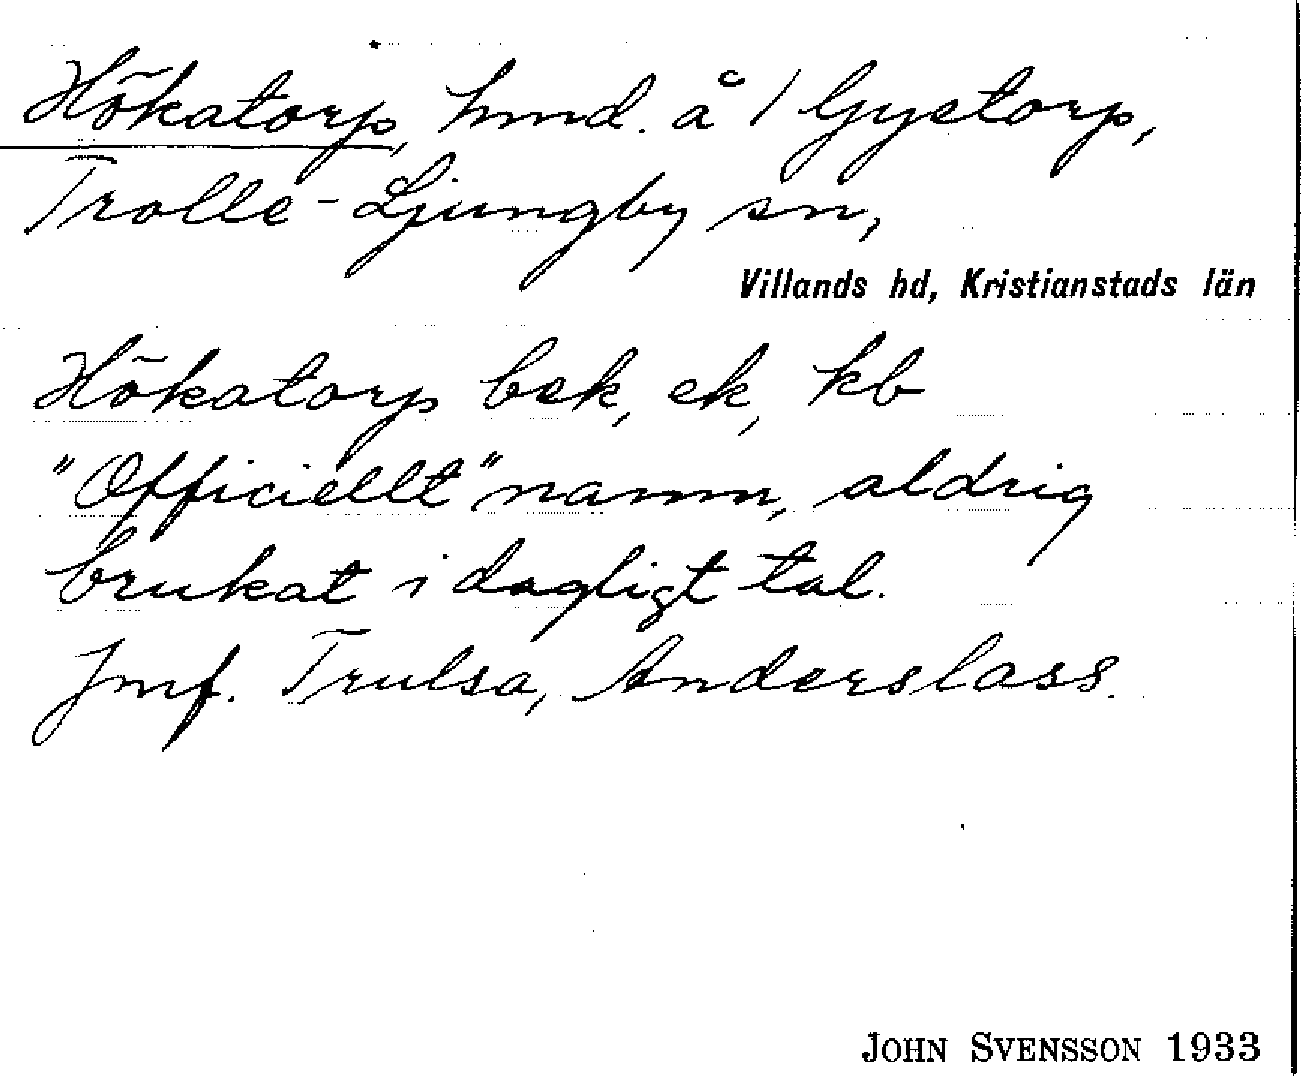 Hökatorp, hmd. å 1 Gyetorp,
Trolle-Ljungby sn,
Villands hd, Kristianstads län
Hökatorp bek, ek, kb
"Officiellt" namn, aldrig
brukat i dagligt tal.
Jmf. Trulsa, Anderslass.
JOHN SVENSSON 1933